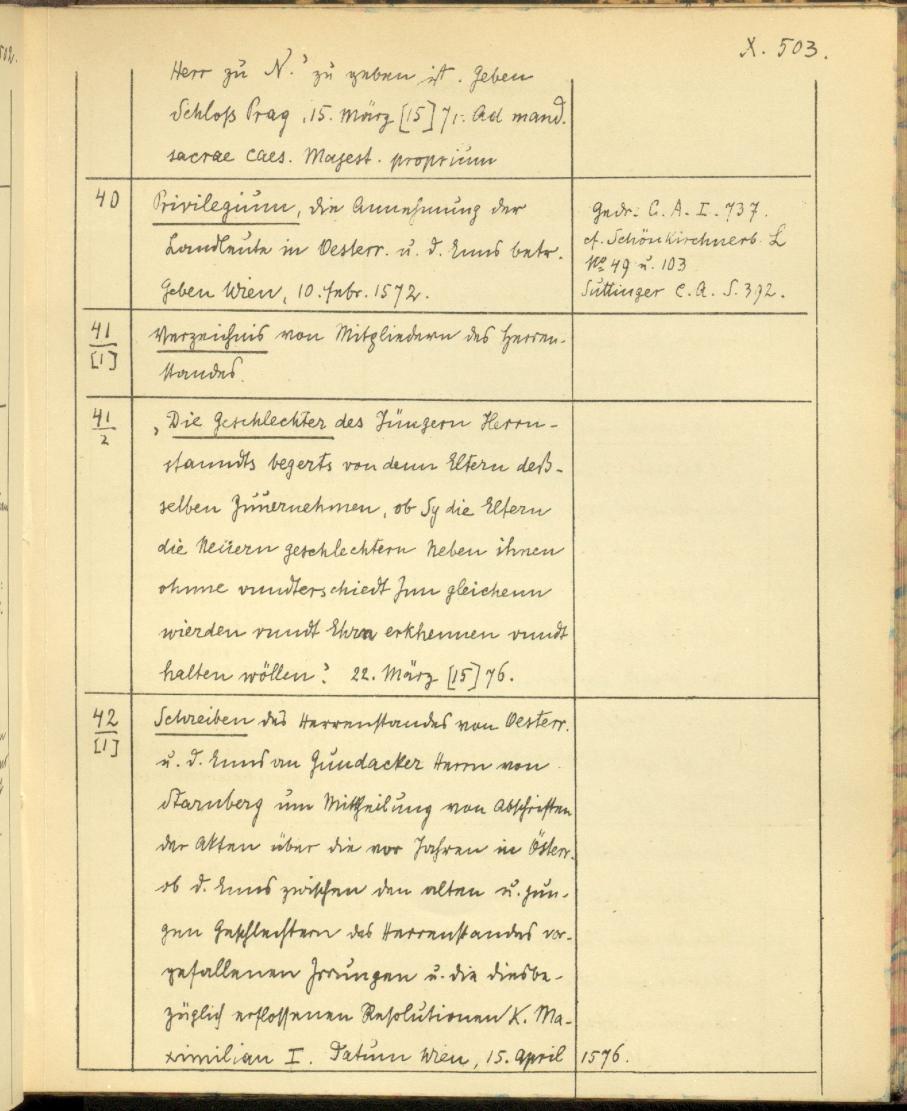 X. 503.
Herr zu N.' zu geben ist. Geben
Schloß Prag, 15. März [15]71. Ad mand.
sacrae caes. Majest. proprium
40
Privilegium, die Annehmung der
Landleute in Oesterr. u. d. Enns betr.
Geben Wien, 10. Febr. 1572.
Gedr. C. A. I. 737.
cf. Schönkirchnerb. L
No 49 u. 103
Suttinger C. A. S. 392.
41
[1]
Verzeichnis von Mitgliedern des Herren-
standes.
41
2
‚Die Geschlechter des Jüngern Herrn-
stanndts begerts von denn Eltern deß-
selben Zuuernehmen, ob Sy die Eltern
die Neüern geschlechtern Neben ihnen
ohnne vundterschiedt Inn gleichenn
wierden vundt Ehrn erkhennen vundt
halten wöllen.' 22. März [15]76.
42
[1]
Schreiben des Herrenstandes von Oesterr.
u. d. Enns an Gundacker Herrn von
Starnberg um Mittheilung von Abschriften
der Akten über die vor Jahren in Österr.
ob d. Enns zwischen den alten u. jun-
gen Geschlechtern des Herrenstandes vor-
gefallenen Irrungen u. die diesbe-
züglich erflossenen Resolutionen K. Ma-
ximilian I. Datum Wien, 15. April 1576.